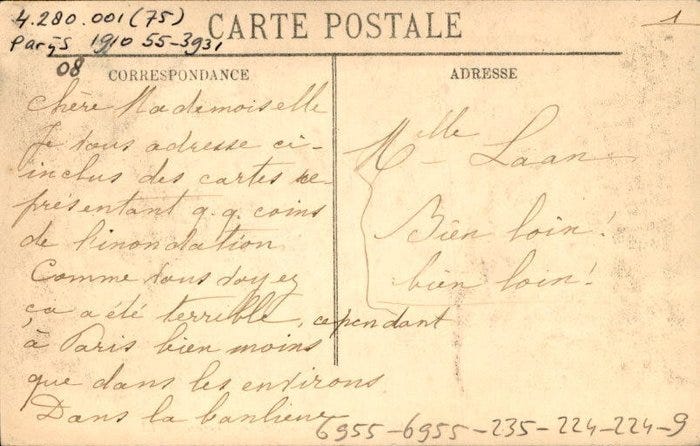 4.280.001 (75)
Parijs 1910 55-3931
08
1
CARTE POSTALE
CORRESPONDANCE
Chère Mademoiselle
Je vous adresse ci-
inclus des cartes re-
présentant q.q. coins
de l'inondation
Comme vous voyez
ça a été terrible, cependant
à Paris bien moins
que dans les environs
Dans la banlieue
ADRESSE
Mlle Laan
Bien loin!
bien loin!
6955-6955-235-224-224-9